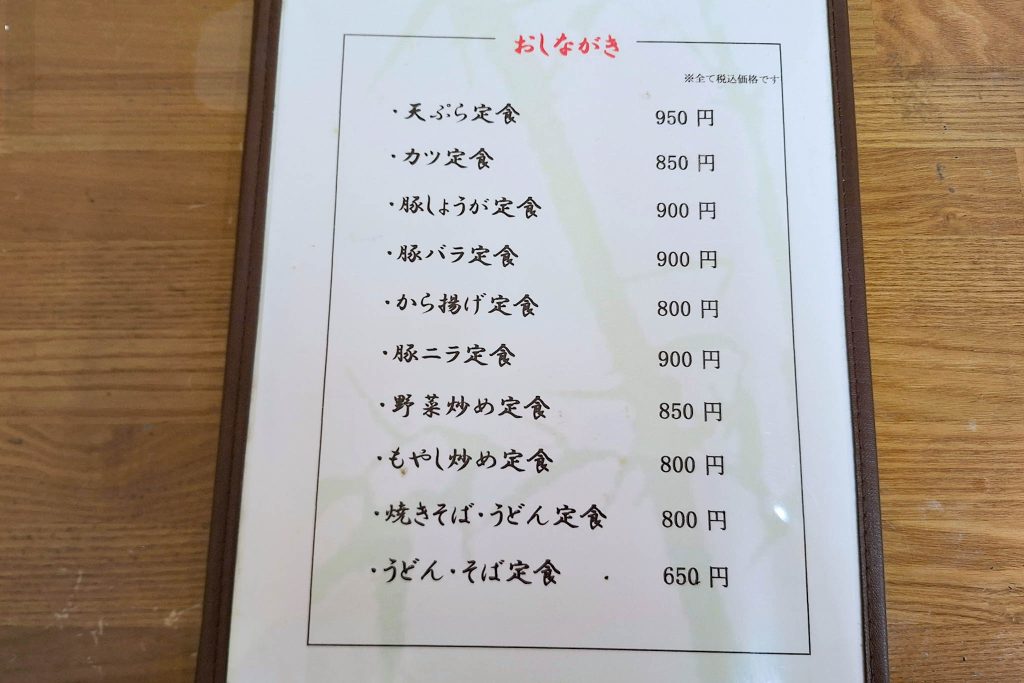 おしながき
※全て税込価格です
・天ぷら定食 950 円
・カツ定食 850 円
・豚しょうが定食 900 円
・豚バラ定食 900 円
・から揚げ定食 800 円
・豚ニラ定食 900 円
・野菜炒め定食 850 円
・もやし炒め定食 800 円
・焼きそば・うどん定食 800 円
・うどん・そば定食 650 円